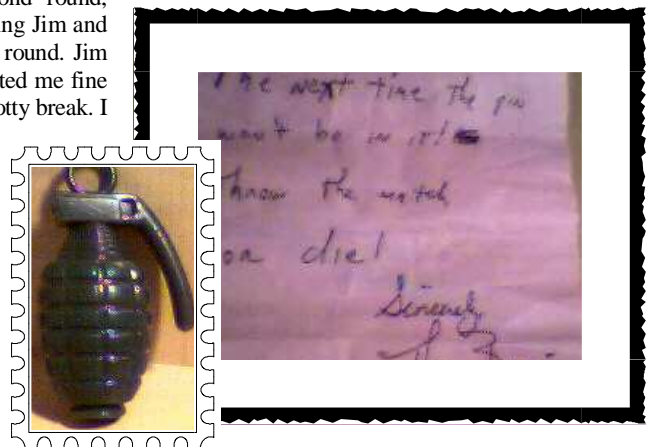 ond round,
ng Jim and
round. Jim
ted me fine
otty break. I
The next time the pin
won't be in it!
Throw the match
or die!
Sincerely